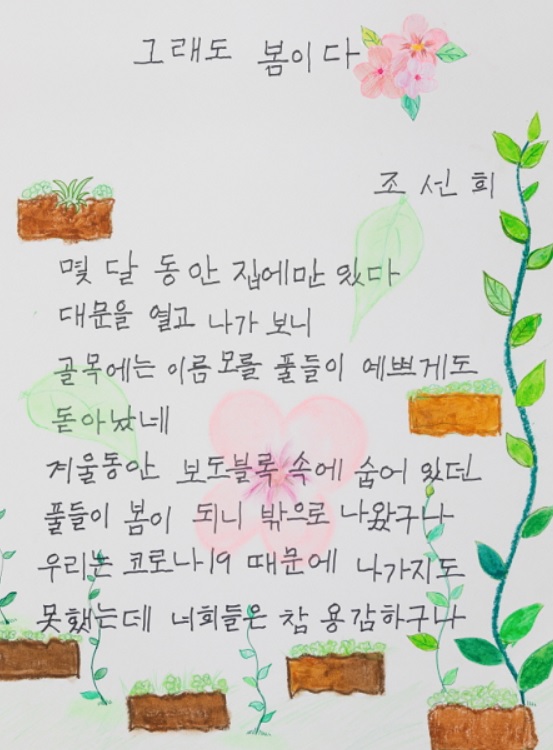 그래도 봄이다
조선희
몇 달 동안 집에만 있다
대문을 열고 나가 보니
골목에는 이름 모를 풀들이 예쁘게도
돋아났네
겨울동안 보도블록 속에 숨어 있던
풀들이 봄이 되니 밖으로 나왔구나
우리는 코로나19 때문에 나가지도
못했는데 너희들은 참 용감하구나